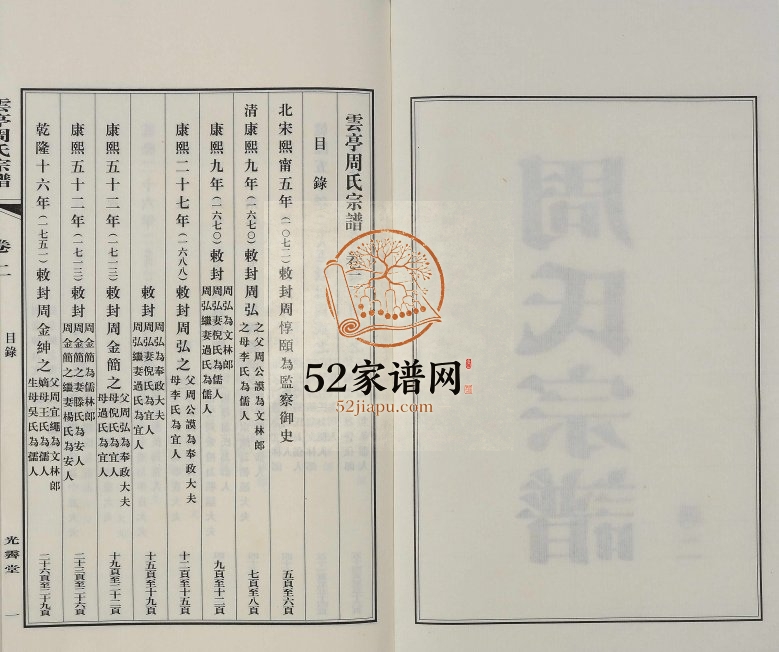 雲亭周氏宗譜 卷二
目錄
北宋熙甯五年(一〇七二)敕封周惇頤為監察御史 五頁至六頁
清康熙九年(一六七〇)敕封周弘之父周公謨為文林郎 之母李氏為儒人 七頁至八頁
康熙九年(一六七〇)敕封周弘為文林郎 周弘妻倪氏為儒人 周弘繼妻過氏為儒人 九頁至十二頁
康熙二十七年(一六八八)敕封周弘之父周公謨為奉政大夫 母李氏為宜人 十二頁至十五頁
敕封周弘為奉政大夫 周弘妻倪氏為宜人 周弘繼妻過氏為宜人 十五頁至十九頁
康熙五十二年(一七一三)敕封周金簡之父周弘為奉政大夫 母倪氏為宜人 母過氏為宜人 十九頁至二十二頁
康熙五十二年(一七一三)敕封周金簡為儒林郎 周金簡之妻滕氏為安人 周金簡之繼妻楊氏為安人 二十三頁至二十六頁
乾隆十六年(一七五一)敕封周金紳之父周宜繩為文林郎 嫡母王氏為孺人 生母吳氏為孺人 二十六頁至二十九頁
雲亭周氏宗譜
卷二
目錄
光霽堂
一
周氏宗譜
52家谱网
52jiapu.com